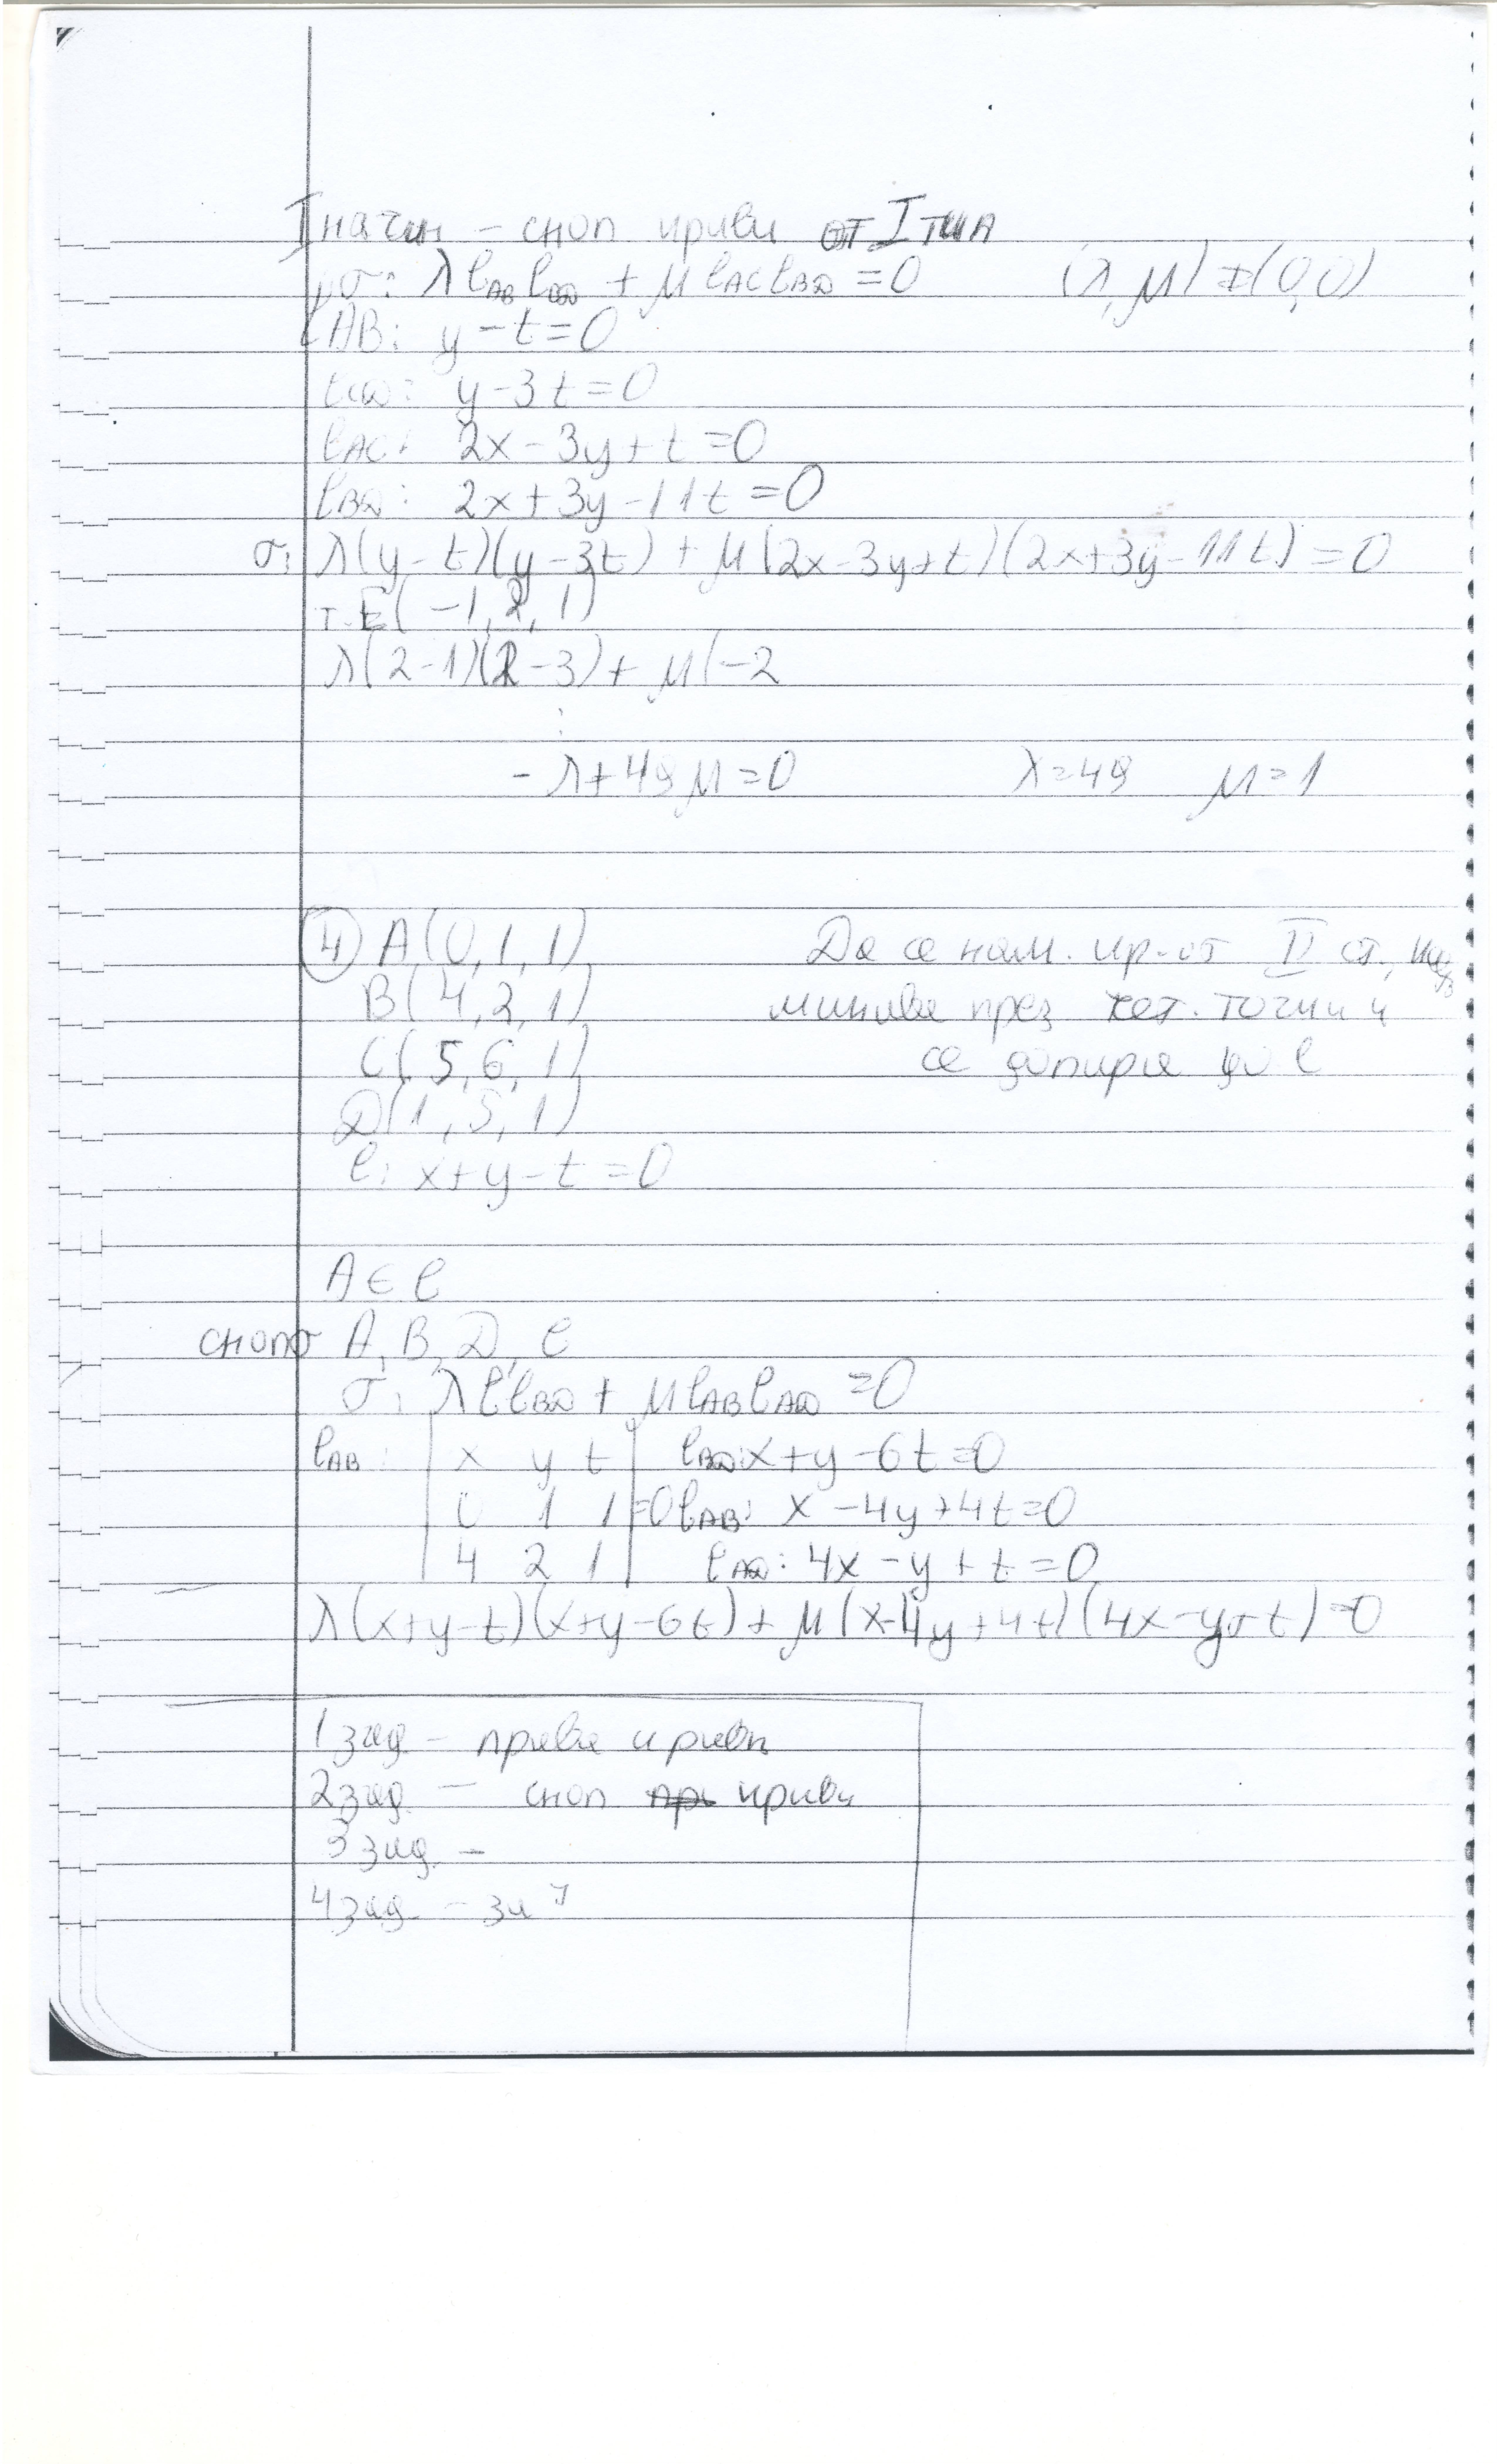 I начин – сноп криви от I тип
σ: λ l_AB l_CD + μ l_AC l_BD = 0 (λ, μ) ≠ (0,0)
l_AB: y – t = 0
l_CD: y – 3t = 0
l_AC: 2x – 3y + t = 0
l_BD: 2x + 3y – 11t = 0
σ: λ(y – t)(y – 3t) + μ(2x – 3y + t)(2x + 3y – 11t) = 0
т. E(–1, 2, 1)
λ(2–1)(2–3) + μ(–2
⋮
– λ + 49μ = 0 λ = 49 μ = 1
4) A(0, 1, 1) Да се нам. кр. от II ст,
B(4, 2, 1) минава през чет. точки и
C(5, 6, 1) се допира до l
D(1, 5, 1)
l: x + y – t = 0
A ∈ l
сноп σ A, B, D, l
σ: λ l l_BD + μ l_AB l_AD = 0
l_AB: | x y t | l_BD: x + y – 6t = 0
| 0 1 1 | = 0 l_AB: x – 4y + 4t = 0
| 4 2 1 | l_AD: 4x – y + t = 0
λ(x+y–t)(x+y–6t) + μ(x–4y+4t)(4x–y+t) = 0
1 зад – права криви
2 зад – сноп криви
3 зад –
4 зад –